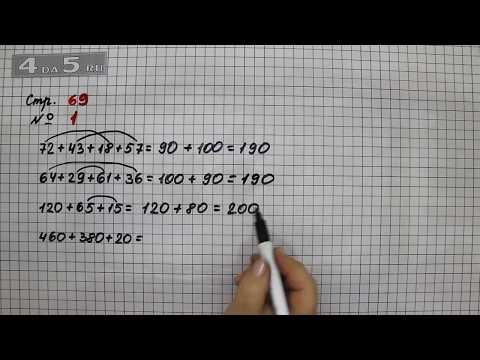 4 DA 5 RU
Стр. 69
№ 1
72+43+18+57=90+100=190
64+29+61+36=100+90=190
120+65+15= 120+80=200
460+380+20=